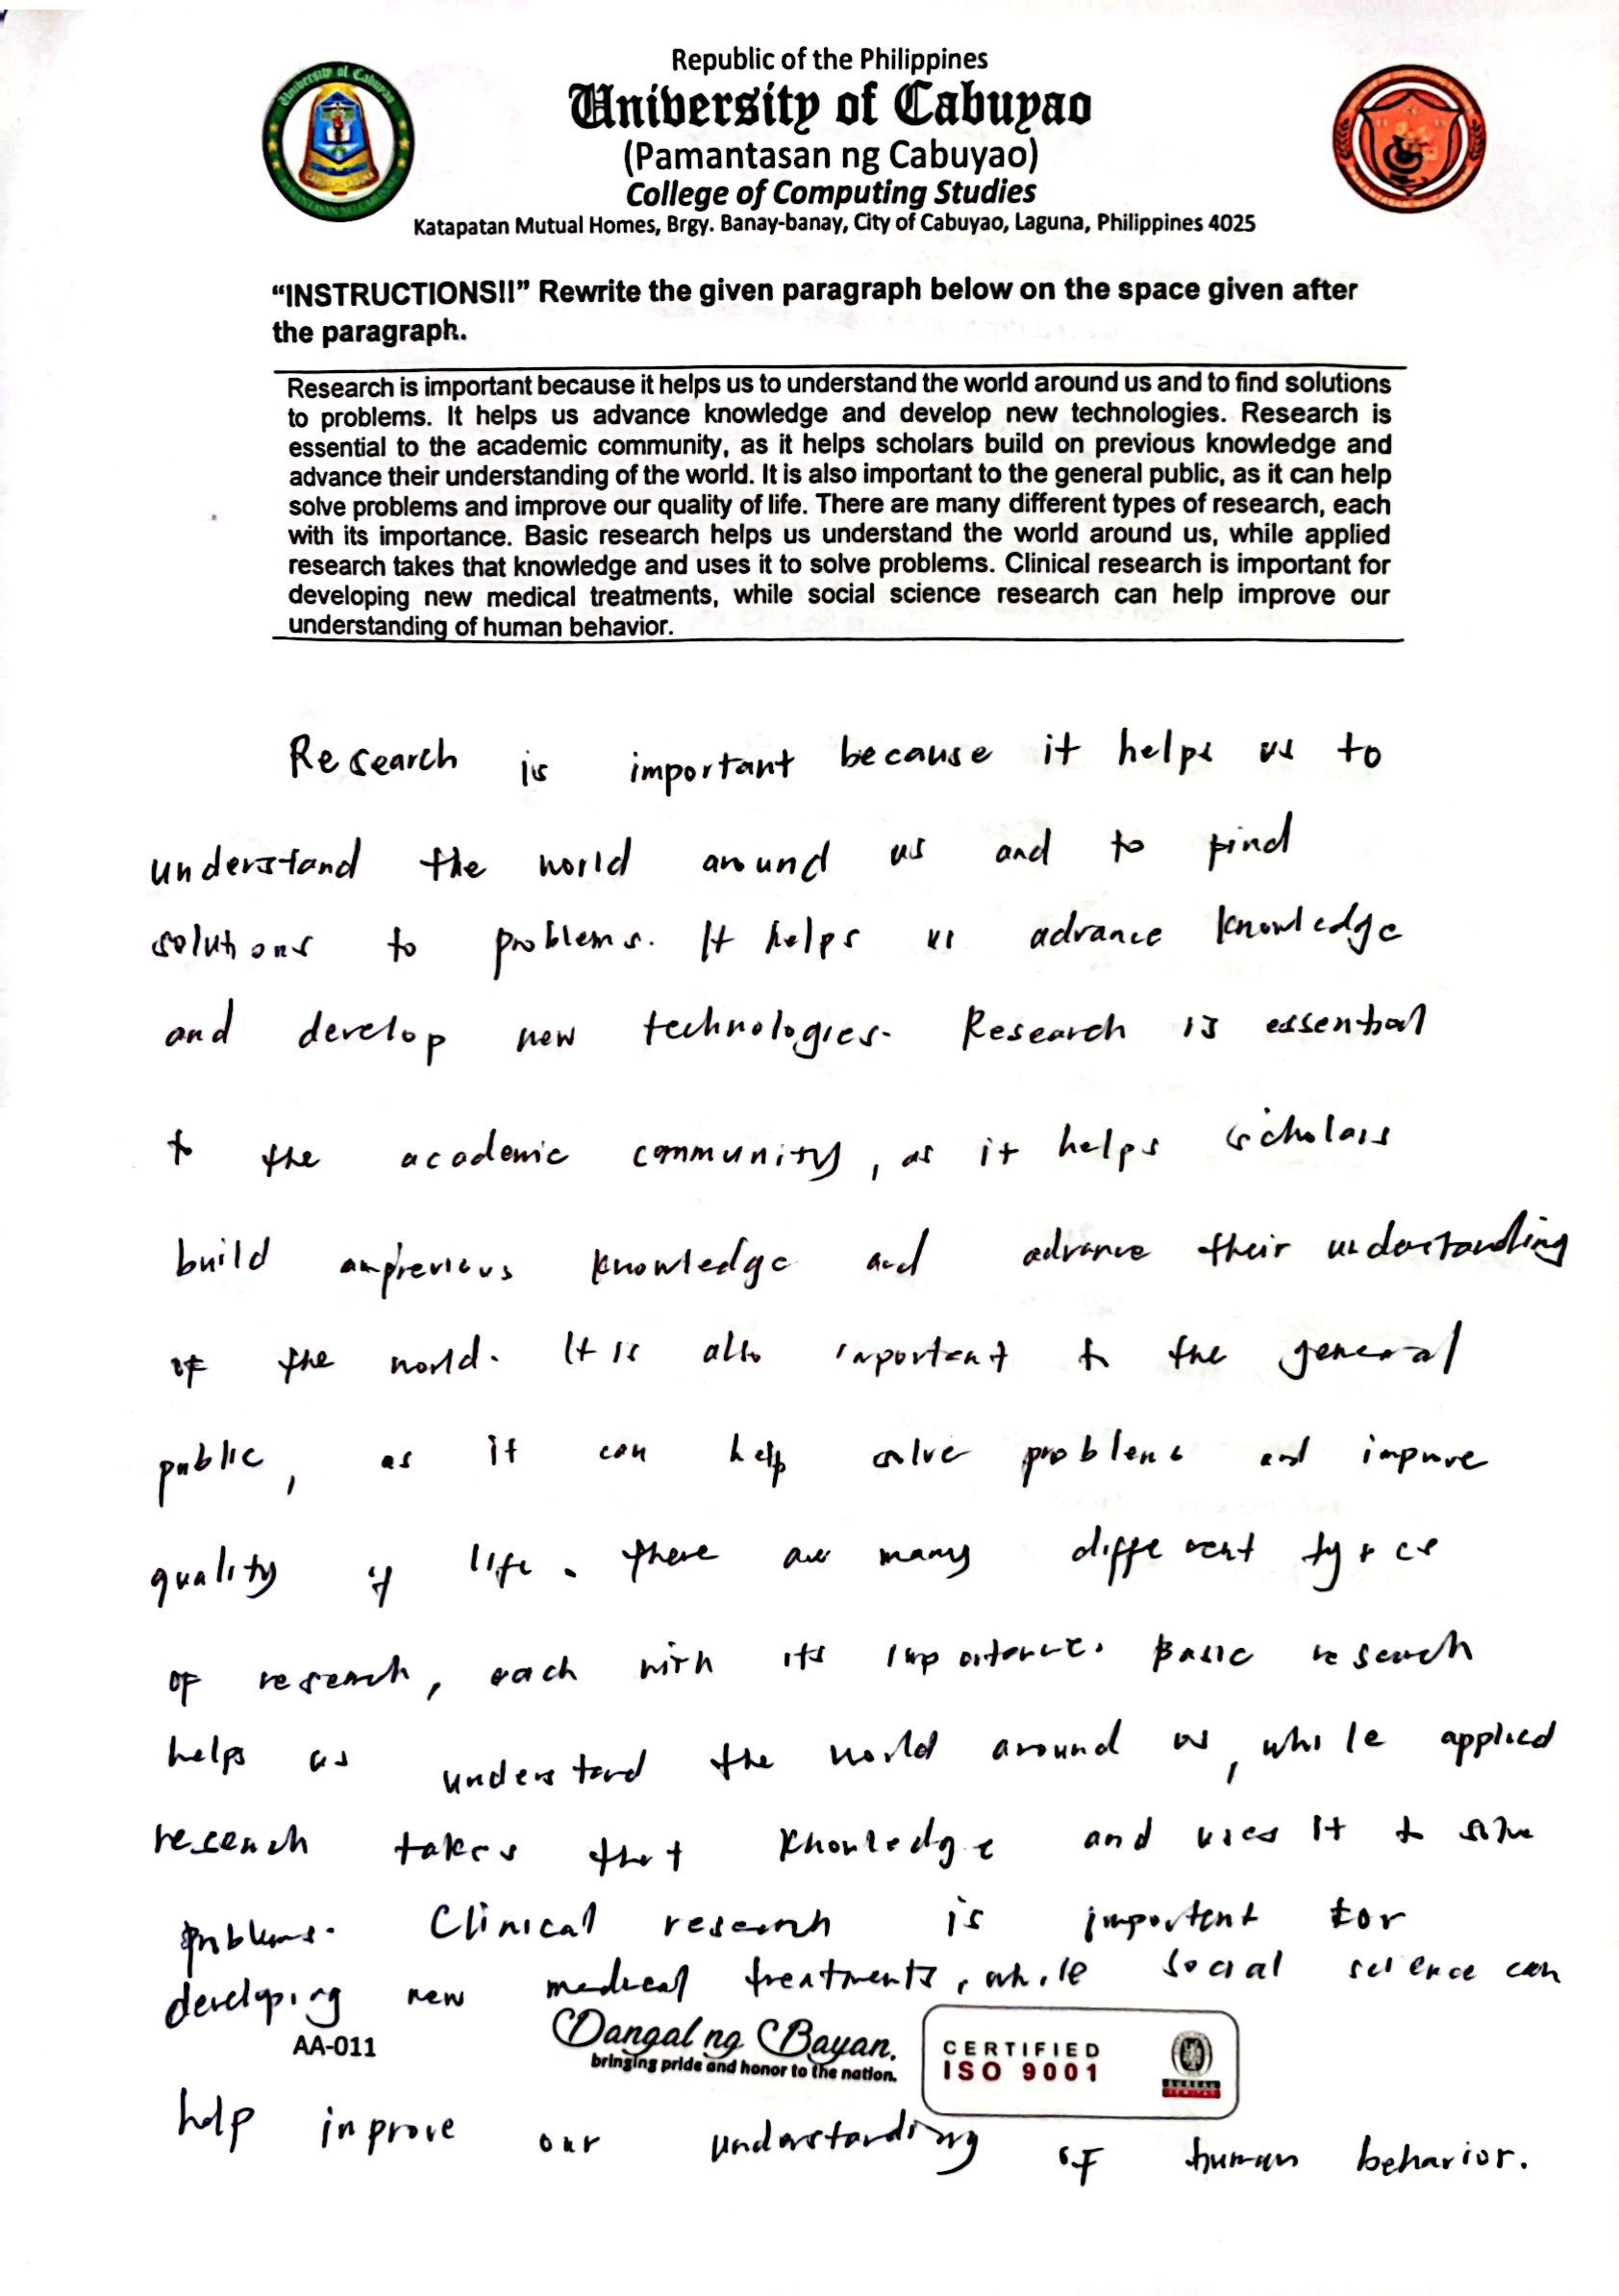 Republic of the Philippines
University of Cabuyao
(Pamantasan ng Cabuyao)
College of Computing Studies
Katapatan Mutual Homes, Brgy. Banay-banay, City of Cabuyao, Laguna, Philippines 4025
“INSTRUCTIONS!!” Rewrite the given paragraph below on the space given after
the paragraph.
Research is important because it helps us to understand the world around us and to find solutions
to problems. It helps us advance knowledge and develop new technologies. Research is
essential to the academic community, as it helps scholars build on previous knowledge and
advance their understanding of the world. It is also important to the general public, as it can help
solve problems and improve our quality of life. There are many different types of research, each
with its importance. Basic research helps us understand the world around us, while applied
research takes that knowledge and uses it to solve problems. Clinical research is important for
developing new medical treatments, while social science research can help improve our
understanding of human behavior.
Research is important because it helps us to
understand the world around us and to find
solutions to problems. It helps us advance knowledge
and develop new technologies. Research is essential
to the academic community, as it helps scholars
build on previous knowledge and advance their understanding
of the world. It is also important to the general
public, as it can help solve problems and improve
quality of life. There are many different types
of research, each with its importance. Basic research
helps us understand the world around us, while applied
research takes that knowledge and uses it to solve
problems. Clinical research is important for
developing new medical treatments, while social science can
AA-011
Dangal ng Bayan.
bringing pride and honor to the nation.
CERTIFIED
ISO 9001
help improve our understanding of human behavior.